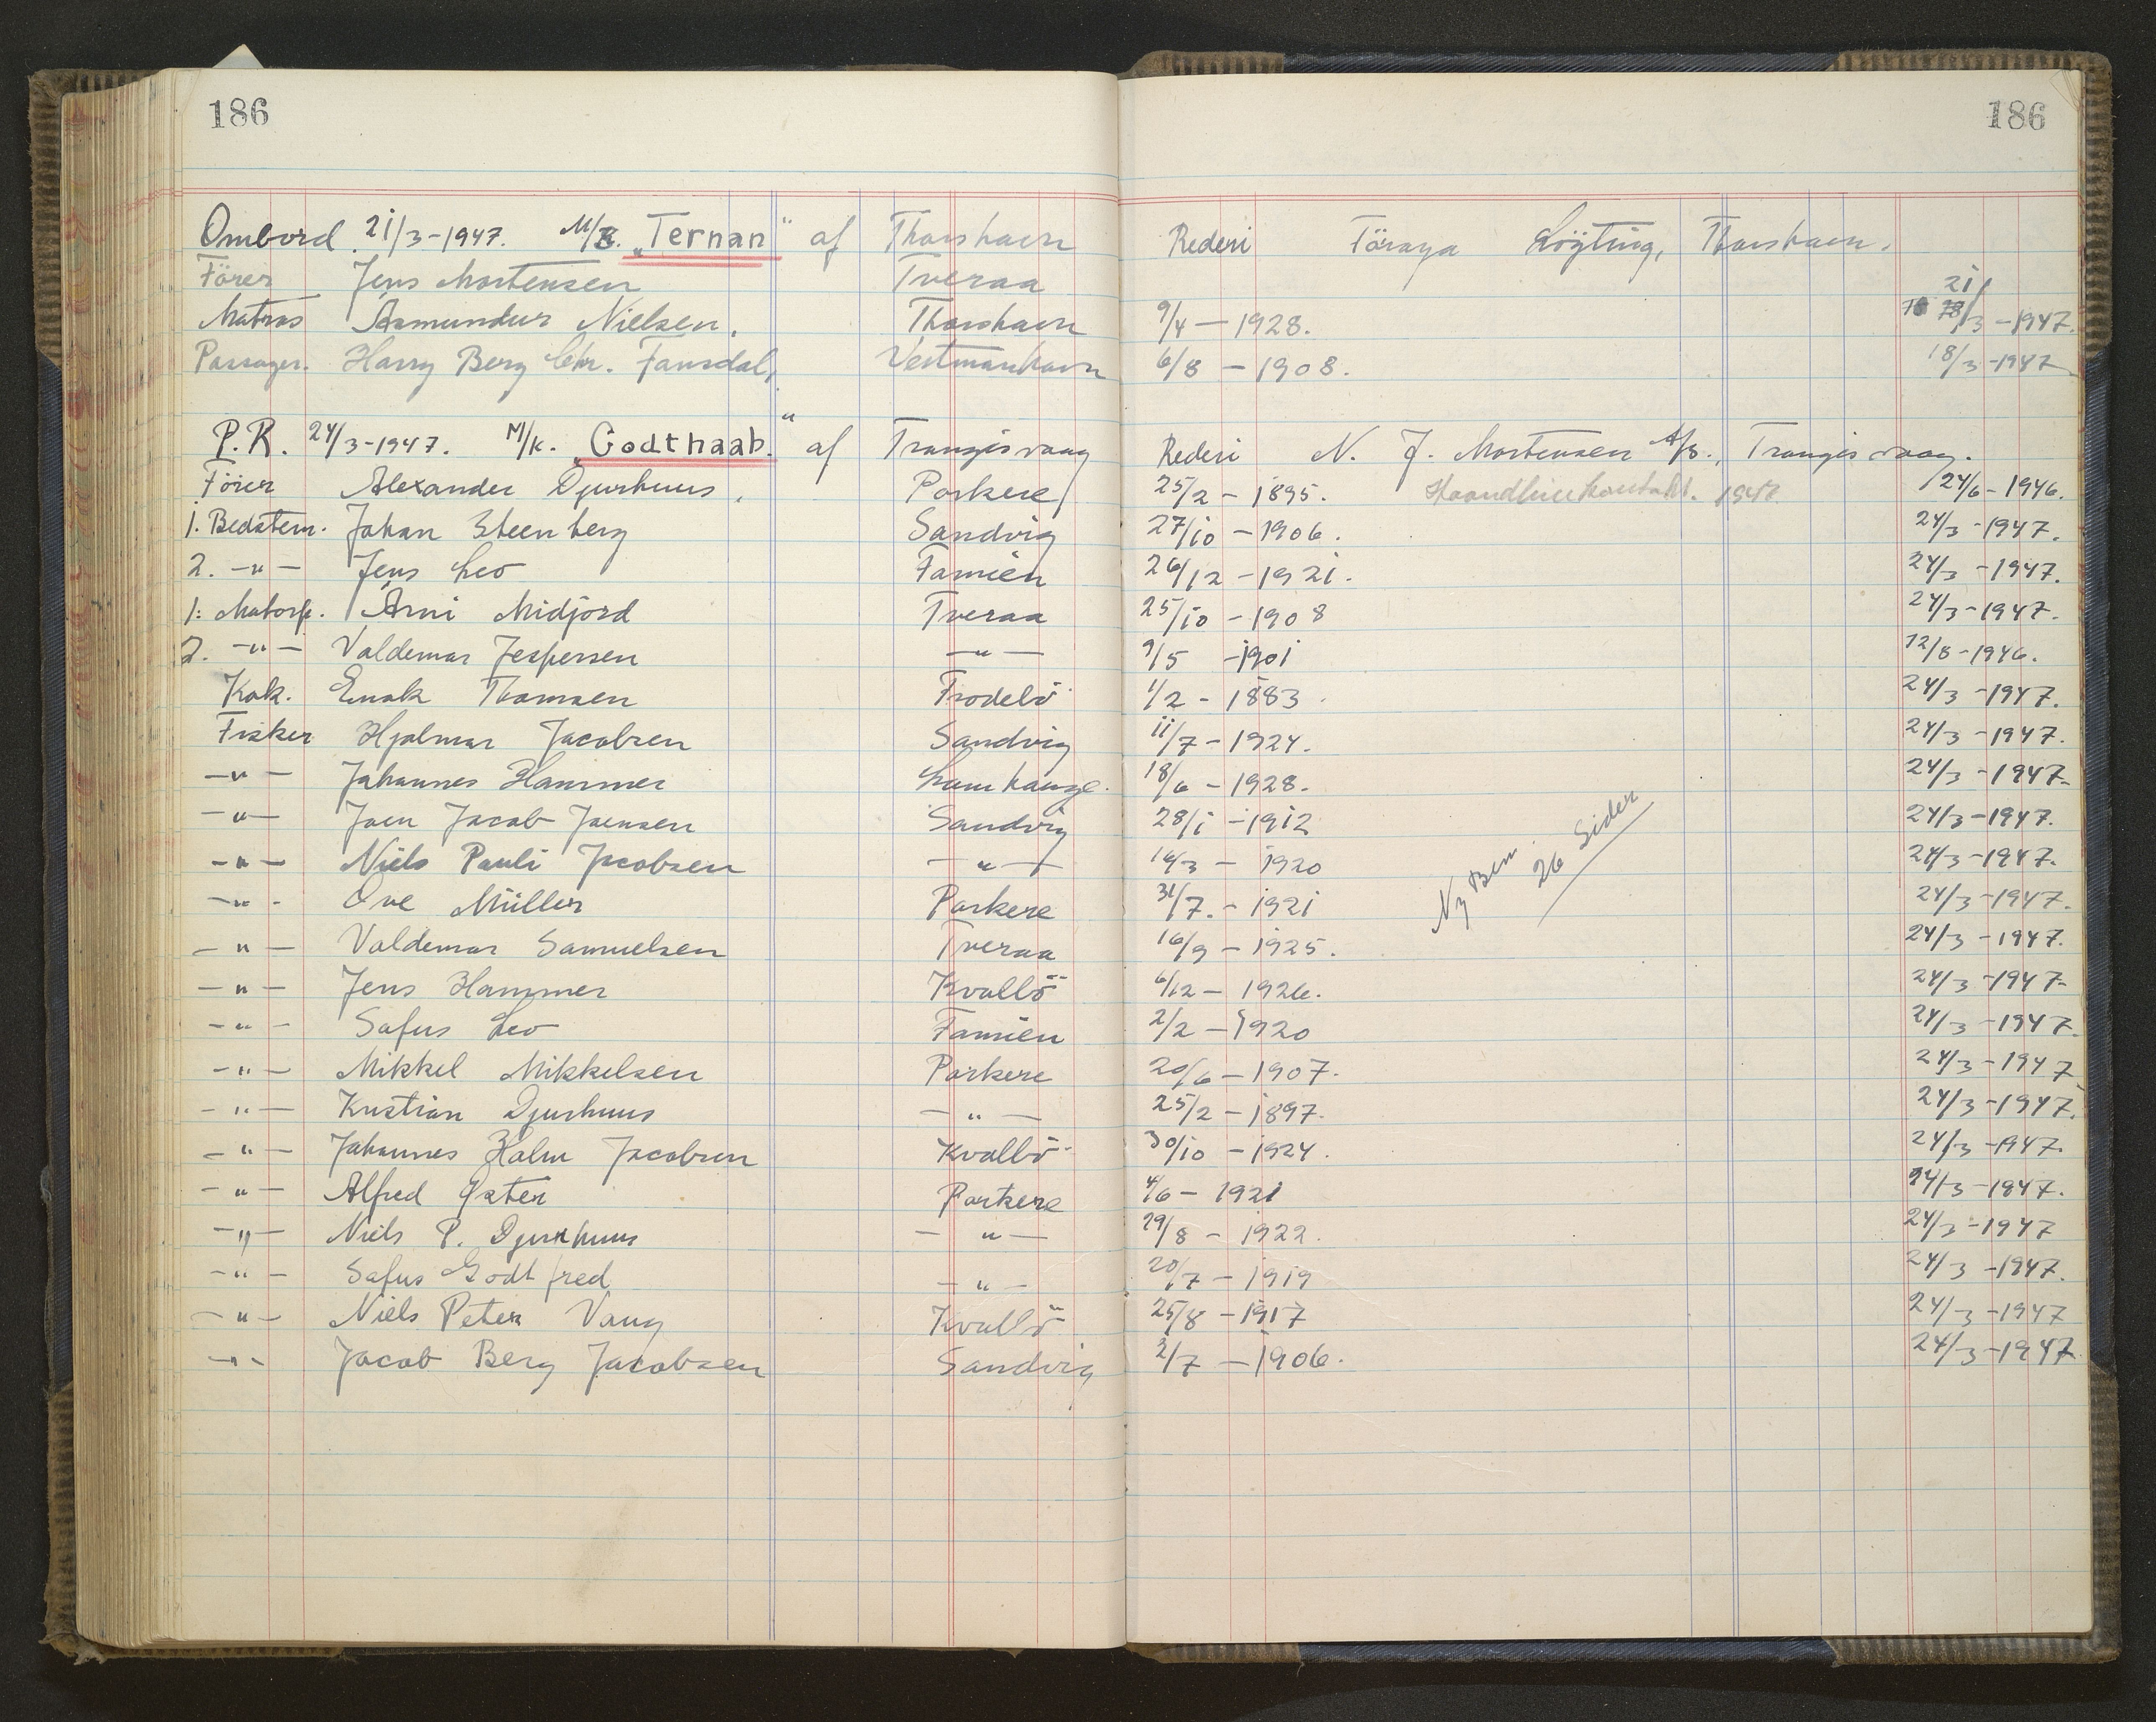 186 186
Ombord 21/3-1947. M/K. „Ternan“ af Thorshavn Rederi Föroya Lögting, Thorshavn.
Förer Jens Mortensen Tveraa 21/
Matros Asmundur Nielsen. Thorshavn 9/4 - 1928. /3 - 1947.
Passager. Harry Berg Chr. Famsdal, Vestmanhavn 6/8 - 1908. 18/3 - 1947
P.R. 24/3-1947. M/K. „Godthaab.“ af Trangisvaag Rederi N. J. Mortensen A/S., Trangisvaag.
Förer Alexander Djurhuus, Porkere 25/2 - 1895. Haandlinekontrakt. 1947 24/6 - 1946.
1. Bedstem. Johan Steenberg Sandvig 27/10 - 1906. 24/3 - 1947.
2. -"- Jens Leo Famien 26/12 - 1921. 24/3 - 1947.
1: Motorp. Arni Midjord Tveraa 25/10 - 1908 24/3 - 1947.
2. -"- Valdemar Jespersen -"- 9/5 - 1901 12/8 - 1946.
Kok. Enok Thomsen Frodebö 1/2 - 1883. 24/3 - 1947.
Fisker Hjalmar Jacobsen Sandvig 11/7 - 1924. 24/3 - 1947.
-"- Johannes Hammer 18/6 - 1928. 24/3 - 1947.
-"- Joen Jacob Joensen Sandvig 28/1 - 1912 24/3 - 1947.
-"- Niels Pauli Jacobsen -"- 16/3 - 1920 Ny Bem. 26 Sider 24/3 - 1947.
-"- Ove Müller Porkere 31/7. - 1921 24/3 - 1947.
-"- Valdemar Samuelsen Tveraa 16/9 - 1925. 24/3 - 1947.
-"- Jens Hammer Kvalbö 6/12 - 1926. 24/3 - 1947.
-"- Sofus Leo Famien 2/2 - 1920 24/3 - 1947.
-"- Mikkel Mikkelsen Porkere 20/6 - 1907. 24/3 - 1947
-"- Kristian Djurhuus -"- 25/2 - 1897. 24/3 - 1947.
-"- Johannes Holm Jacobsen Kvalbö 30/10 - 1924. 24/3 - 1947.
-"- Alfred Öster Porkere 4/6 - 1921 24/3 - 1947.
-"- Niels P. Djurhuus -"- 29/8 - 1922. 24/3 - 1947
-"- Sofus Godtfred -"- 20/7 - 1919 24/3 - 1947.
-"- Niels Peter Vang Kvalbö 25/8 - 1917 24/3 - 1947
-"- Jacob Berg Jacobsen Sandvig 2/7 - 1906. 24/3 - 1947